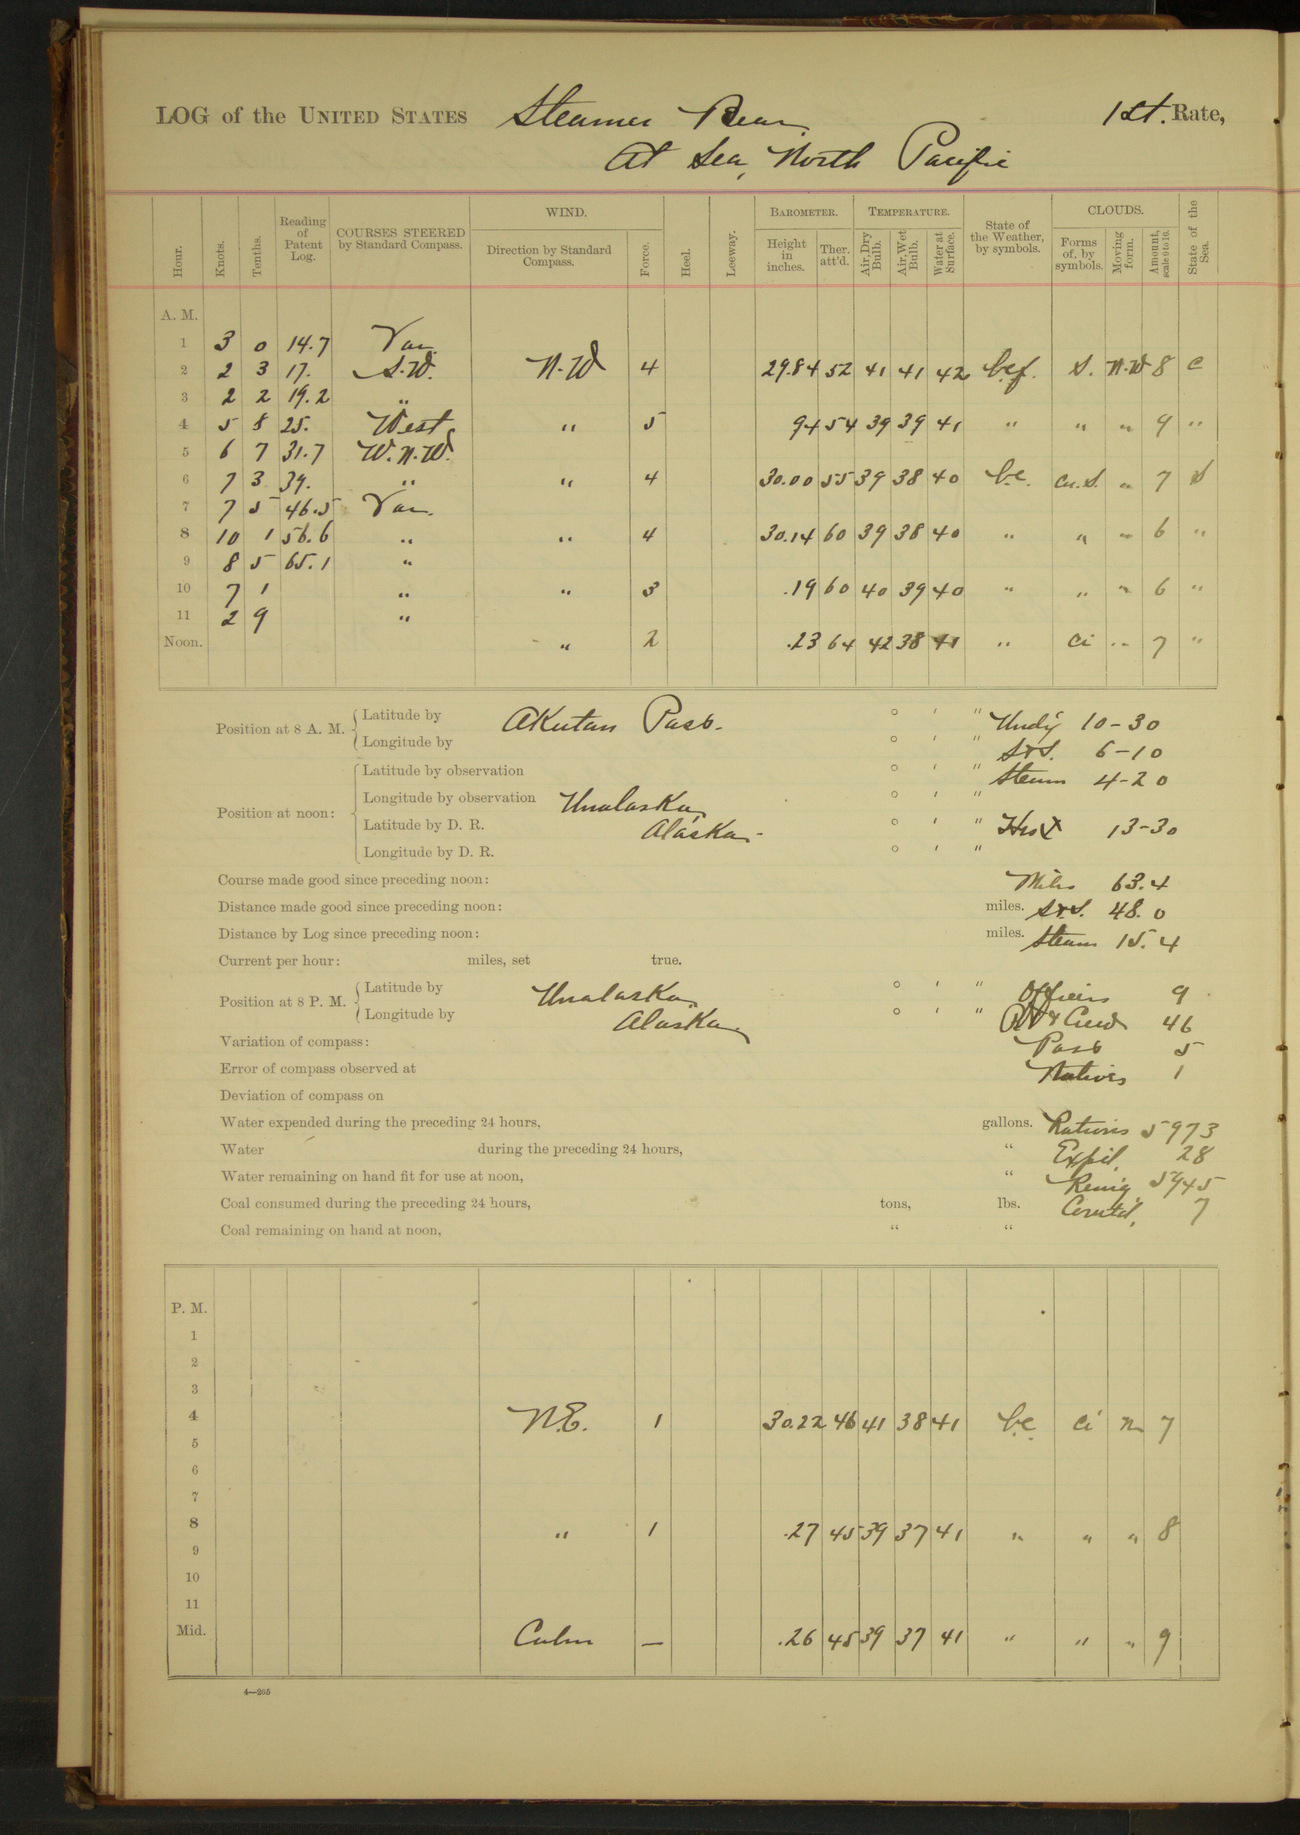 LOG of the UNITED STATES Steamer Bear 1st. Rate,
At Sea, North Pacific
Hour. Knots. Tenths. Reading of Patent Log. COURSES STEERED by Standard Compass. WIND. Direction by Standard Compass. Force. Heel. Leeway. BAROMETER. Height in inches. Ther. att'd. TEMPERATURE. Air, Dry Bulb. Air, Wet Bulb. Water at Surface. State of the Weather, by symbols. CLOUDS. Forms of, by symbols. Moving form. Amount, scale 0 to 10. State of the Sea.
A. M.
1 3 0 14.7 Var.
2 2 3 17. S.W. N.W 4 29.84 52 41 41 42 b.c.f. S. N.W 8 C
3 2 2 19.2 "
4 5 8 25. West " 5 94 54 39 39 41 " " " 9 "
5 6 7 31.7 W.N.W.
6 7 3 39. " " 4 30.00 55 39 38 40 b.c. Cu.S. " 7 S
7 7 5 46.5 Var.
8 10 1 56.6 " " 4 30.14 60 39 38 40 " " " 6 "
9 8 5 65.1 "
10 7 1 " " 3 .19 60 40 39 40 " " " 6 "
11 2 9 "
Noon. " 2 .23 64 42 38 41 " Ci " 7 "
Position at 8 A. M. Latitude by Akutan Pass. ° ' " Undy 10-30
Longitude by ° ' " S&S. 6-10
Position at noon: Latitude by observation ° ' " Steam 4-20
Longitude by observation Unalaska ° ' "
Latitude by D. R. Alaska. ° ' " 13-30
Longitude by D. R. ° ' "
Course made good since preceding noon: Miles 63.4
Distance made good since preceding noon: miles. S&S. 48.0
Distance by Log since preceding noon: miles. Steam 15.4
Current per hour: miles, set true.
Position at 8 P. M. Latitude by Unalaska ° ' " Officers 9
Longitude by Alaska. ° ' " & Crew 46
Variation of compass: Pass 5
Error of compass observed at Natives 1
Deviation of compass on
Water expended during the preceding 24 hours, gallons. Rations 5973
Water during the preceding 24 hours, " Exp'd. 28
Water remaining on hand fit for use at noon, " Remg 5945
Coal consumed during the preceding 24 hours, tons, lbs. Comtd. 7
Coal remaining on hand at noon, " "
P. M.
1
2
3
4 N.E. 1 30.22 46 41 38 41 b.c. Ci N 7
5
6
7
8 " 1 .27 45 39 37 41 " " " 8
9
10
11
Mid. Calm — .26 45 39 37 41 " " " 9
4—265